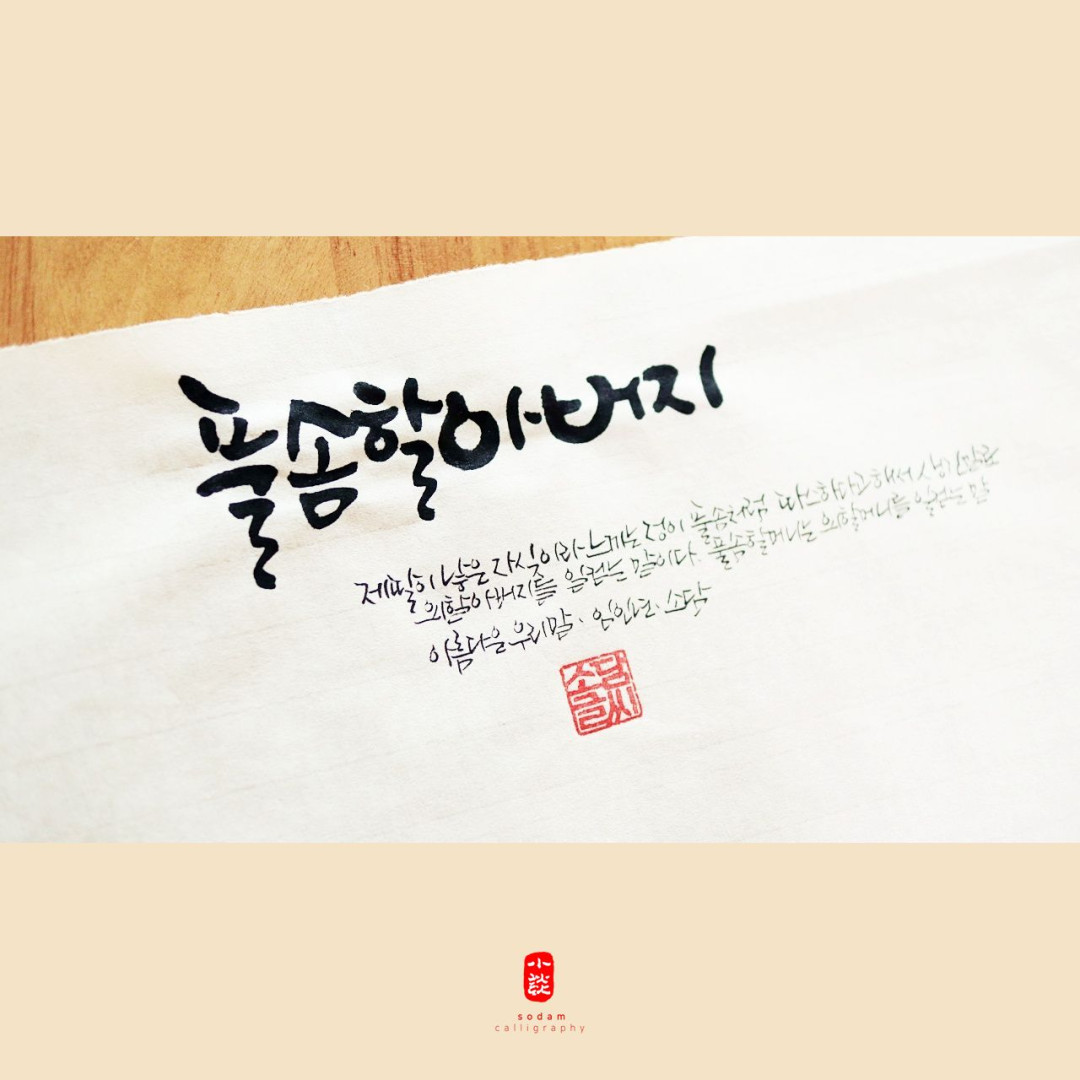 풀솜할아버지
제 딸이 낳은 자식이라 느끼는 정이 풀솜처럼 따스하다고 해서
외할아버지를 일컫는 말이다. 풀솜할머니는 외할머니를
아름다운 우리말. 소담
소담
글씨
小
sodam
calligraphy